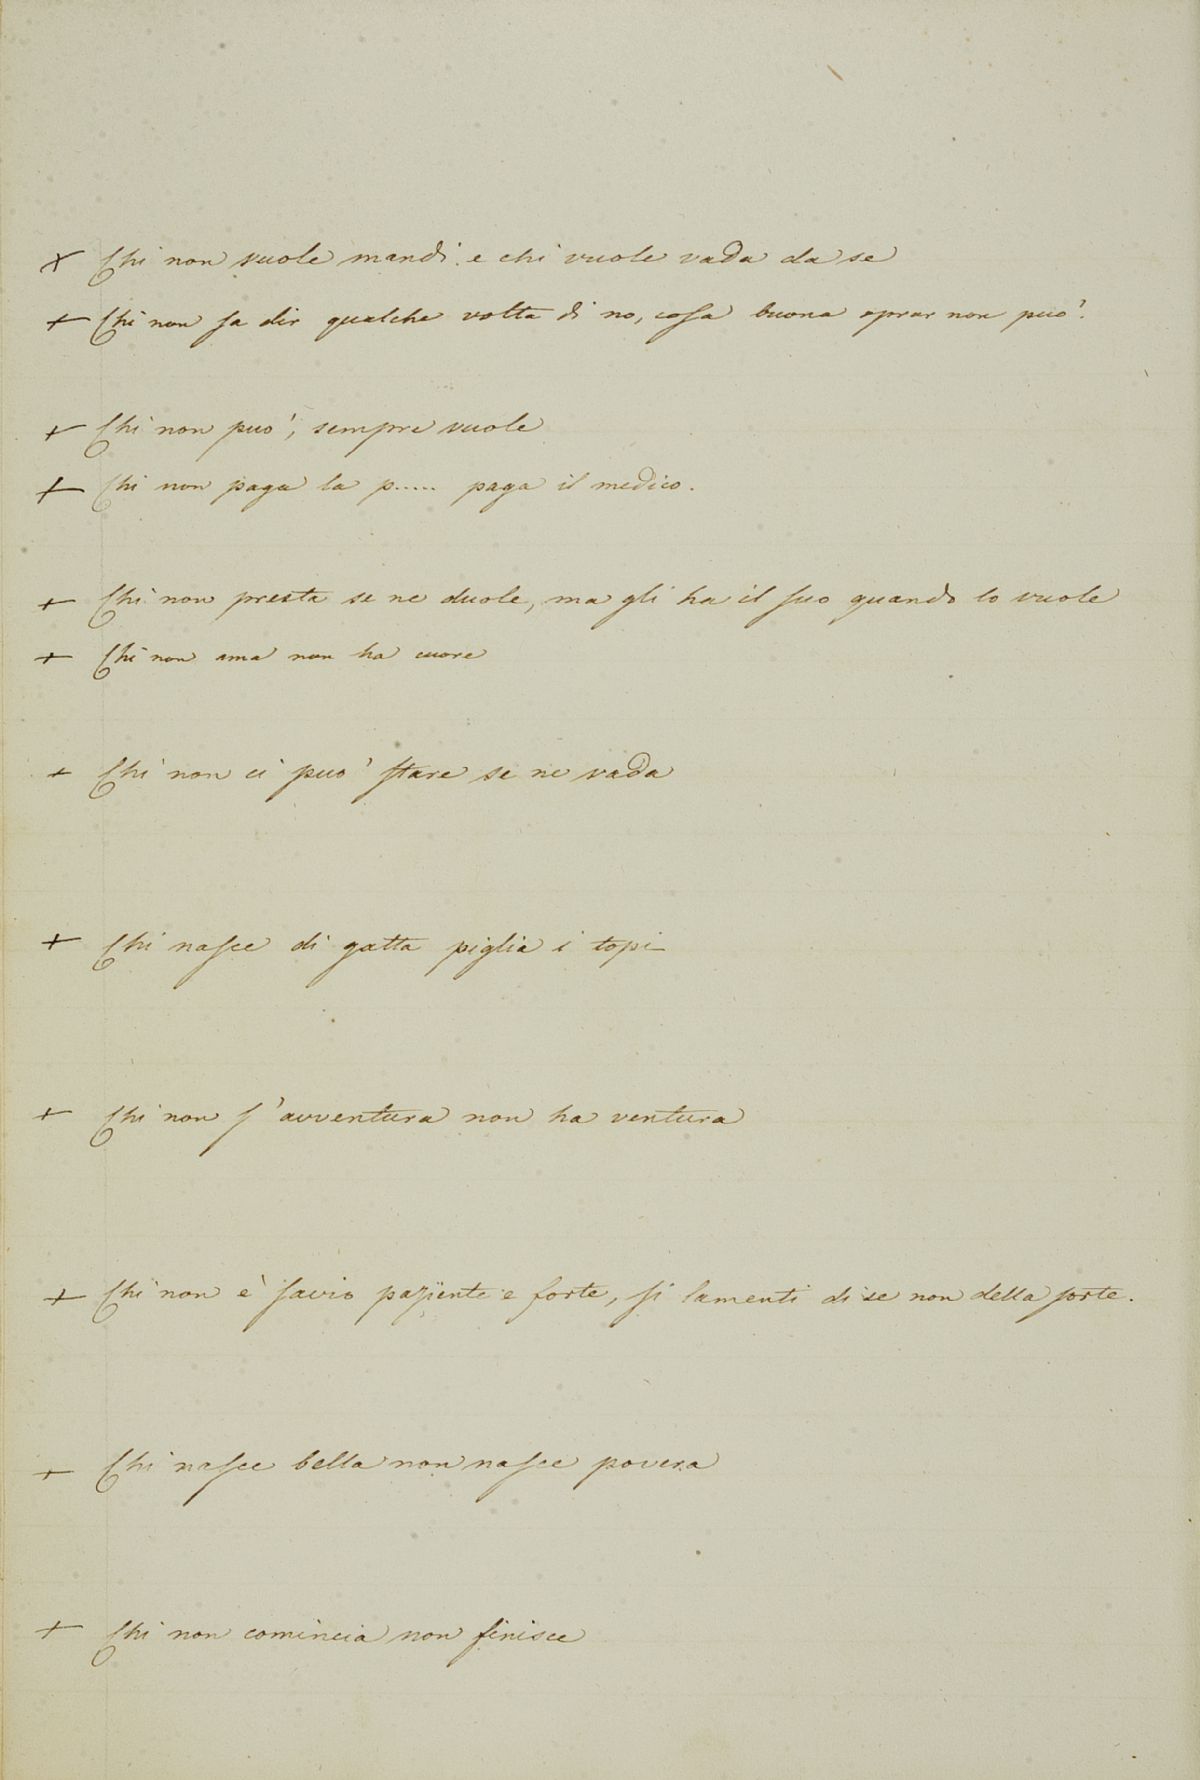 + Chi non vuole mandi e chi vuole vada da se
+ Chi non sa dir qualche volta di no, cosa buona oprar non può.
+ Chi non può, sempre vuole
+ Chi non paga la p..... paga il medico.
+ Chi non presta se ne duole, ma gli ha il suo quando lo vuole
+ Chi non ama non ha cuore
+ Chi non ci può stare se ne vada
+ Chi nasce di gatta piglia i topi
+ Chi non s'avventura non ha ventura
+ Chi non è savio paziente e forte, si lamenti di se non della sorte.
+ Chi nasce bella non nasce povera
+ Chi non comincia non finisce